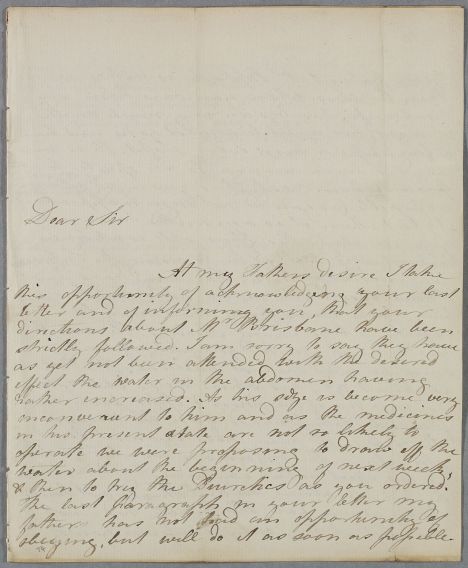 Dear Sir
At my Fathers desire I take
this opportunity of acknowledging your last
letter and of informing you, that your
directions about Mr Brisbane have been
strictly followed. I am sorry to say they have
as yet not been attended with the desired
effect the water in the abdomen having
rather encreased. As his size is become very
inconvenient to him and as the medicines
in his present state are not so likely to
operate we were proposing to draw off the
water about the beginning of next week,
& then to try the Diuretics as you ordered.
The last Paragraph in your letter my
father has not had an opportunity of
obeying, but will do it as soon as possible.